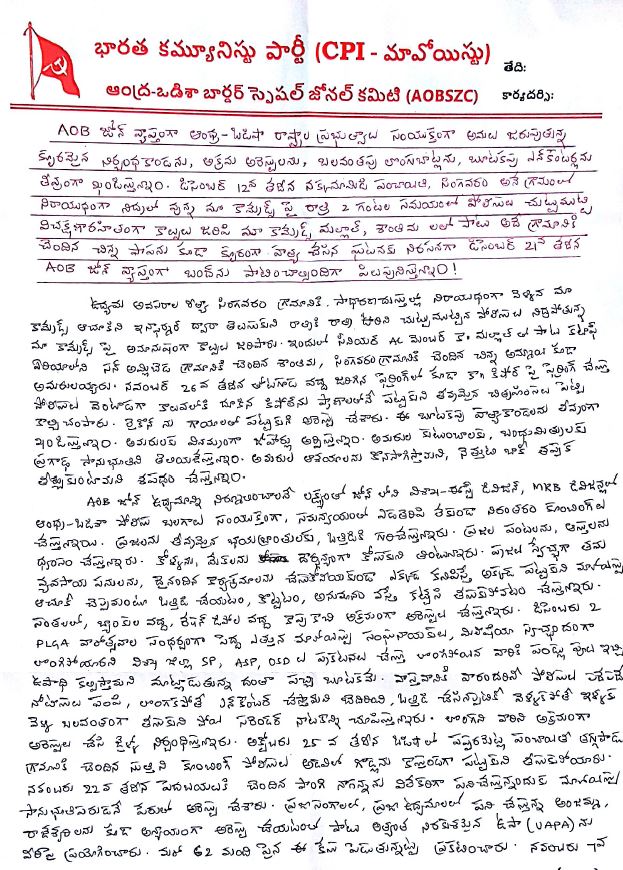 భారత కమ్యూనిస్టు పార్టీ (CPI - మావోయిస్టు)
తేది:
ఆంధ్ర-ఒడిశా బార్డర్ స్పెషల్ జోనల్ కమిటి (AOBSZC)
కార్యదర్శి:
AOB జోన్ వ్యాప్తంగా ఆంధ్ర-ఒడిషా రాష్ట్రాల ప్రభుత్వాలు సంయుక్తంగా అమలు జరుపుతున్న
క్రూరమైన నిర్బంధకాండను, అక్రమ అరెస్టులను, బలవంతపు లొంగుబాట్లను, బూటకపు ఎన్‌కౌంటర్లను
తీవ్రంగా ఖండిస్తున్నాం. డిసెంబర్ 12న తేదిన పంచాయితి, సింగవరం అనే గ్రామంలో
నిరాయుధంగా నిద్రలో వున్న మా కామ్రేడ్స్ పై రాత్రి 2 గంటల సమయంలో పోలీసులు చుట్టుముట్టి
విచక్షణారహితంగా కాల్పులు జరిపి మా కామ్రేడ్స్ మల్లాల్, శాంతిమ లతో పాటు అదే గ్రామానికి
చెందిన చిన్న పాపను కూడా క్రూరంగా హత్య చేసిన ఘటనకు నిరసనగా డిసెంబర్ 21న తేదిన
AOB జోన్ వ్యాప్తంగా బంద్‌ను పాటించాల్సిందిగా పిలుపునిస్తున్నాం!
ఉద్యమ అవసరాల రీత్యా సింగవరం గ్రామానికి సాధారణ దుస్తుల్లో నిరాయుధంగా వెళ్ళిన మా
కామ్రేడ్స్ ఆచూకిని ఇన్ఫార్మర్ ద్వారా తెలుసుకుని రాత్రికి రాత్రి ఊరిని చుట్టుముట్టిన పోలీసులు నిద్రపోతున్న
మా కామ్రేడ్స్ పై అమానుషంగా కాల్పులు జరిపారు. ఇందులో సీనియర్ AC మెంబర్ కా. మల్లాల్ తో పాటు కటాఫ్
ఏరియాలోని గ్రామానికి చెందిన శాంతిమ, సింగవరం గ్రామానికి చెందిన చిన్న అమ్మాయి కూడా
అమరులయ్యారు. నవంబర్ 26న తేదిన వద్ద జరిగిన ఫైరింగ్‌లో కూడా కా. కిషోర్ పై ఫైరింగ్ చేస్తూ
పోలీసులు వెంటాడగా కాలువలోకి దూకిన కిషోర్‌ను ప్రాణాలతోనే పట్టుకుని తీవ్రమైన చిత్రహింసలు పెట్టి
కాల్చి చంపారు. రైకోన్ ను గాయాలతో పట్టుకుని అరెస్టు చేశారు. ఈ బూటకపు హత్యాకాండలను తీవ్రంగా
ఖండిస్తున్నాం. అమరులకు వినమ్రంగా జోహార్లు అర్పిస్తున్నాం. అమరుల కుటుంబాలకు, బంధుమిత్రులకు
ప్రగాఢ సానుభూతిని తెలియజేస్తున్నాం. అమరుల ఆశయాలను కొనసాగిస్తామని, నెత్తుటి బాకీ తప్పక
తీర్చుకుంటామని శపథం చేస్తున్నాం.
AOB జోన్ ఉద్యమాన్ని నిర్మూలించాలనే లక్ష్యంతో జోన్ లోని విశాఖ-ఈస్ట్ డివిజన్, MKB డివిజన్లలో
ఆంధ్ర-ఒడిశా పోలీసు బలగాలు సంయుక్తంగా, సమన్వయంతో ఎడతెరిపి లేకుండా నిరంతరం కూంబింగ్‌లు
చేస్తున్నాయి. ప్రజలను తీవ్రమైన భయభ్రాంతులకు, ఒత్తిడికి గురిచేస్తున్నారు. ప్రజల పంటలను, ఆస్తులను
ధ్వంసం చేస్తున్నారు. కోళ్ళను, మేకలను దౌర్జన్యంగా కోసుకుని తింటున్నారు. ప్రజలు స్వేచ్ఛగా తమ
వ్యవసాయ పనులను, దైనందిన కార్యక్రమాలను చేసుకోనీయకుండా ఎక్కడ కనిపిస్తే అక్కడ పట్టుకుని మావోయిస్టు
ఆచూకి చెప్పమంటూ ఒత్తిడి చేయటం, కొట్టటం, అనుమానం వస్తే తీసుకుపోవటం చేస్తున్నారు.
సంతలలో, బ్యాంకుల వద్ద, రేషన్ డిపోల వద్ద కాపు కాచి అక్రమంగా అరెస్టులు చేస్తున్నారు. డిసెంబరు 2
PLGA వారోత్సవాల సందర్భంగా పెద్ద ఎత్తున మావోయిస్టు సంఘనాయకులు, మిలీషియా స్వచ్ఛందంగా
లొంగిపోయారని విశాఖ జిల్లా SP, ASP, OSD లు ప్రకటనలు చేస్తూ లొంగిపోయిన వారికి పండ్లు పూలు ఇచ్చి
ఉపాధి కల్పిస్తామని మాట్లాడుతున్నదంతా పచ్చి బూటకమే. వాస్తవానికి వారందరినీ పోలీసులు
నోటీసులు పంపి, లొంగకపోతే ఎన్‌కౌంటర్ చేస్తామని బెదిరించి, ఒత్తిడి చేసినప్పటికీ వెళ్ళకపోతే ఇళ్ళకు
వెళ్ళి బలవంతంగా తీసుకుని పోయి సరెండర్ నాటకాన్ని చూపిస్తున్నారు. లొంగని వారిని అక్రమంగా
అరెస్టులు చేసి జైళ్ళో నిర్బంధిస్తున్నారు. అక్టోబరు 25 న తేదిన ఒడిషాలో పంచాయితీ
గ్రామానికి చెందిన కూంబింగ్ పోలీసులు అడవిలో గొడ్లను కాస్తుండగా పట్టుకుని తీసుకుపోయారు.
నవంబరు 22 న తేదిన పెదబయలుకి చెందిన పాంగి నాగన్నను విలేకరిగా పనిచేస్తున్నందుకు మావోయిస్టు
సానుభూతిపరుడనే పేరుతో అరెస్టు చేశారు. ప్రజాసంఘాలలో, ప్రజా ఉద్యమాలలో పని చేస్తున్న అంజమ్మ,
రాజేశ్వరిలను కూడా అన్యాయంగా అరెస్టు చేయటంతో పాటు అత్యంత నిరంకుశమైన ఉపా (UAPA) ను
వీరిపై ప్రయోగించారు. మరో 62 మంది పైన ఈ కేసు పెడుతున్నట్లు ప్రకటించారు. నవంబరు 7న